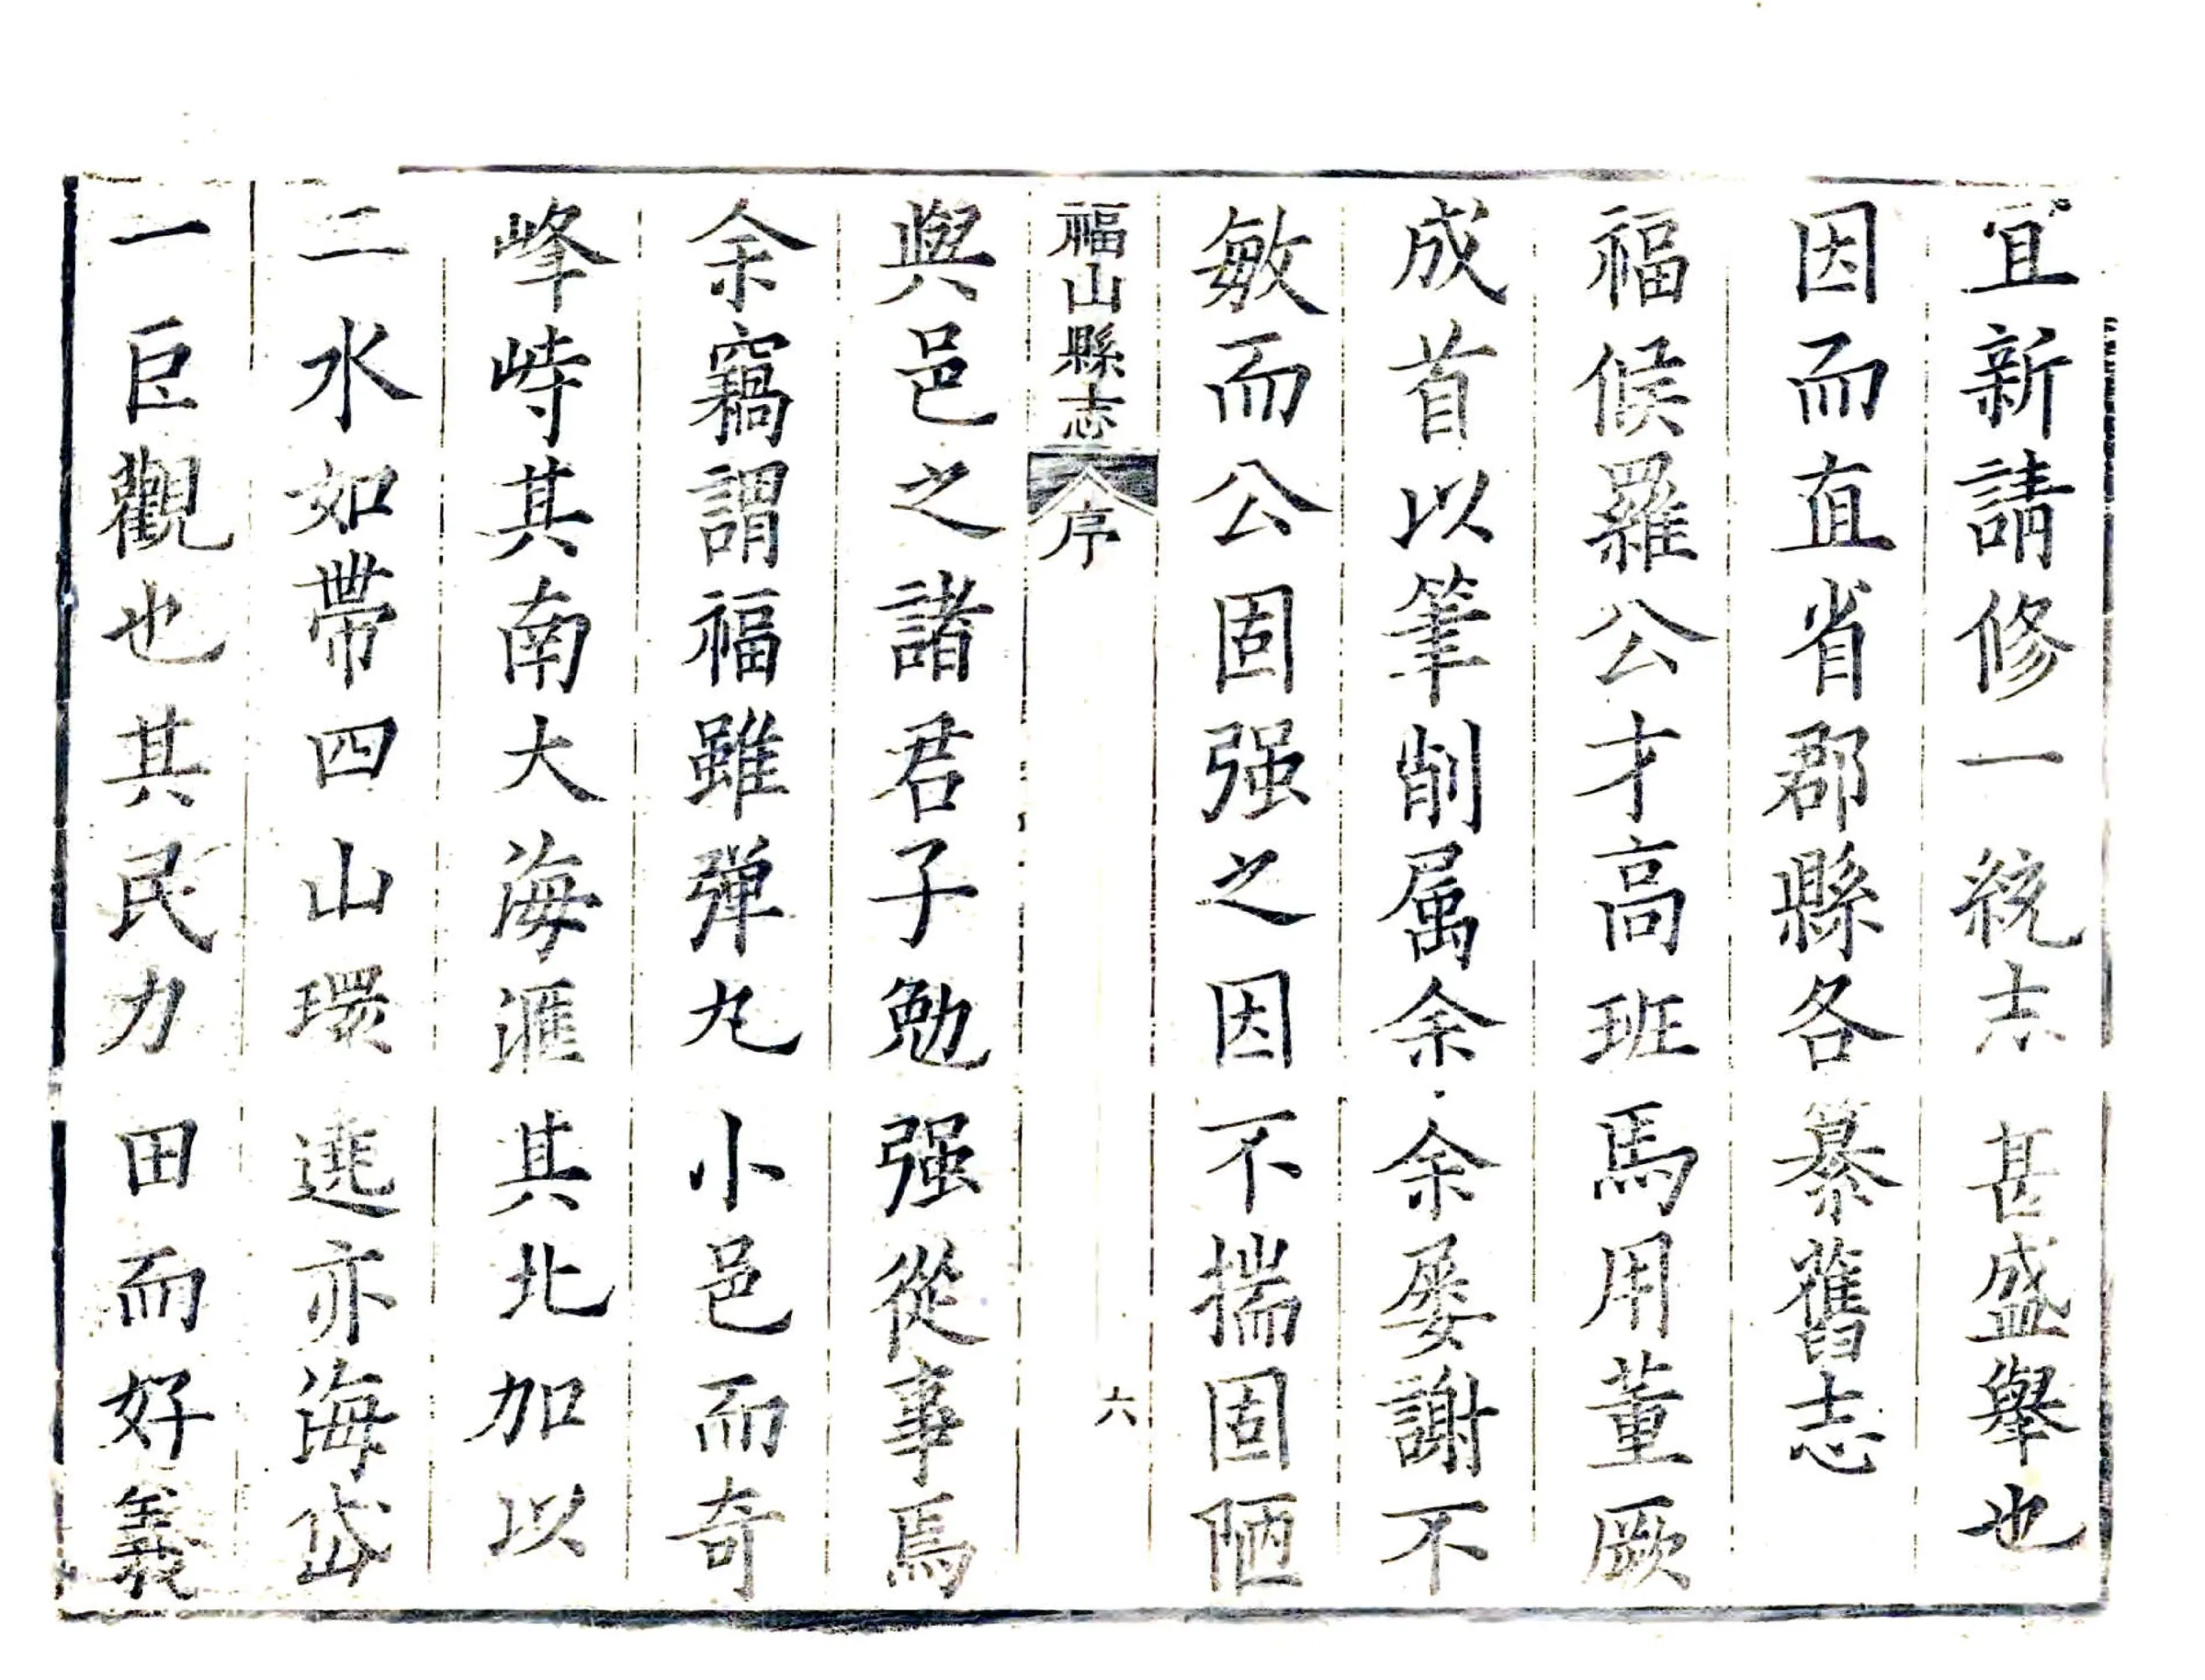 宜新請修一統志甚盛舉也
因而直省郡縣各纂舊志
福候羅公才高班馬用董厥
成首以筆削属余余屡謝不
敏而公固强之因不揣固陋
福山縣志
序
六
與邑之諸君子勉强從事焉
余竊謂福雖彈丸小邑而奇
峰峙其南大海滙其北加以
二水如帶四山環遶亦海岱
一巨觀也其民力田而好義